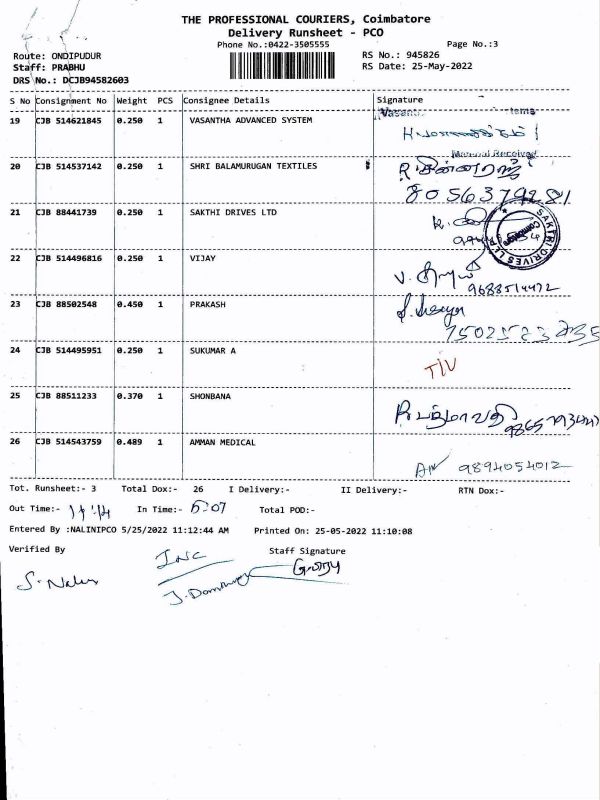 THE PROFESSIONAL COURIERS, Coimbatore
Delivery Runsheet - PCO
Phone No.:0422-3505555 Page No.:3
Route: ONDIPUDUR RS No.: 945826
Staff: PRABHU RS Date: 25-May-2022
DRS No.: DCJB94582603
S No Consignment No Weight PCS Consignee Details Signature
19 CJB 514621845 0.250 1 VASANTHA ADVANCED SYSTEM
Material Received
20 CJB 514537142 0.250 1 SHRI BALAMURUGAN TEXTILES
8056379281
21 CJB 88441739 0.250 1 SAKTHI DRIVES LTD
SAKTHI DRIVES
22 CJB 514496816 0.250 1 VIJAY
9688514472
23 CJB 88502548 0.450 1 PRAKASH
24 CJB 514495951 0.250 1 SUKUMAR A
25 CJB 88511233 0.370 1 SHONBANA
R பத்மாவதி
26 CJB 514543759 0.489 1 AMMAN MEDICAL
9894054012
Tot. Runsheet:- 3 Total Dox:- 26 I Delivery:- II Delivery:- RTN Dox:-
Out Time:- In Time:- 6:07 Total POD:-
Entered By :NALINIPCO 5/25/2022 11:12:44 AM Printed On: 25-05-2022 11:10:08
Verified By Staff Signature